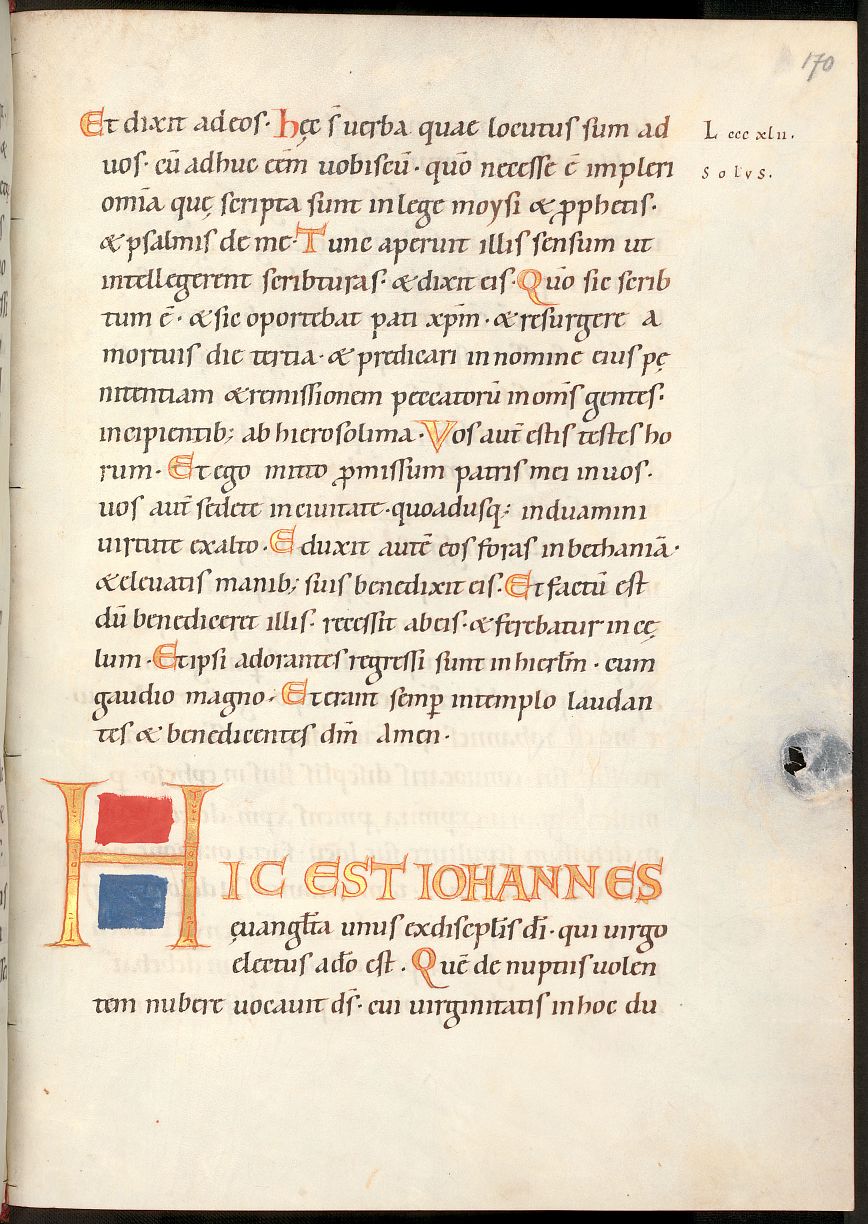 170
Et dixit ad eos· hęc s̄ uerba quae locutus sum ad
L cccxlii.
uos· cū adhuc eēm uobiscū· quō necesse ē impleri
Solvs.
om̄ia quę scripta sunt in lege moysi & p̄phetis·
& psalmis de me· Tunc aperuit illis sensum ut
intellegerent scribturas· & dixit eis· Quō sic scrib
tum ē· & sic oportebat pati xp̄m· & resurgere a
mortuis die tertia· & predicari in nomine eius pę
nitentiam & remissionem peccatorū in om̄s gentes·
incipientib; ab hierosolima· Vos aut̄ estis testes ho
rum· Et ego mitto p̄missum patris mei in uos·
uos aut̄ sedete in ciuitate· quoadusq; induamini
uirtute ex alto· Eduxit autē eos foras in bethaniā·
& eleuatis manib; suis benedixit eis· Et factū est
dū benediceret illis· recessit ab eis· & ferebatur in cę
lum· Et ipsi adorantes regressi sunt in hierl̄m· cum
gaudio magno· Et erant semp̄ in templo laudan
tes & benedicentes dm̄ Amen·
HIC EST IOHANNES
ęuangl̄ta unus ex discipl̄is dī· qui uirgo
electus a dō est· Quē de nuptiis uolen
tem nubere uocauit ds̄· cui uirginitatis in hoc du